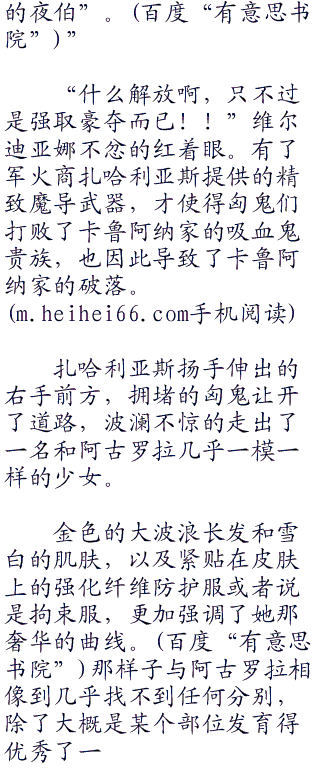 的夜伯”。(百度“有意思书
院”)”
“什么解放啊，只不过
是强取豪夺而已！！”维尔
迪亚娜不忿的红着眼。有了
军火商扎哈利亚斯提供的精
致魔导武器，才使得匈鬼们
打败了卡鲁阿纳家的吸血鬼
贵族，也因此导致了卡鲁阿
纳家的破落。
(m.heihei66.com手机阅读)
扎哈利亚斯扬手伸出的
右手前方，拥堵的匈鬼让开
了道路，波澜不惊的走出了
一名和阿古罗拉几乎一模一
样的少女。
金色的大波浪长发和雪
白的肌肤，以及紧贴在皮肤
上的强化纤维防护服或者说
是拘束服，更加强调了她那
奢华的曲线。(百度“有意思
书院”)那样子与阿古罗拉相
像到几乎找不到任何分别，
除了大概是某个部位发育得
优秀了一